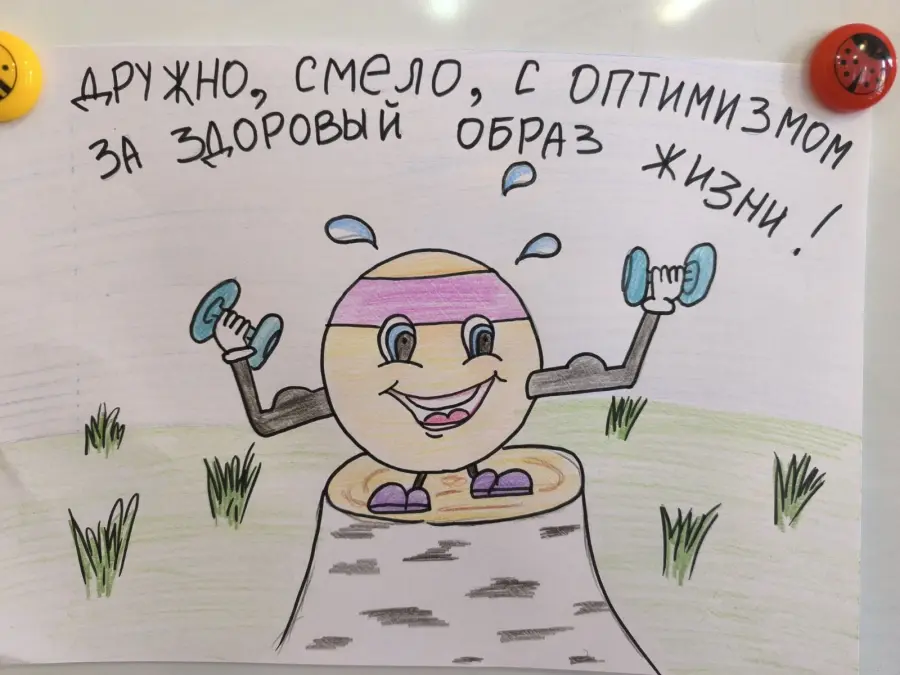 ДРУЖНО, СМЕЛО, С ОПТИМИЗМОМ
ЗА ЗДОРОВЫЙ ОБРАЗ ЖИЗНИ!